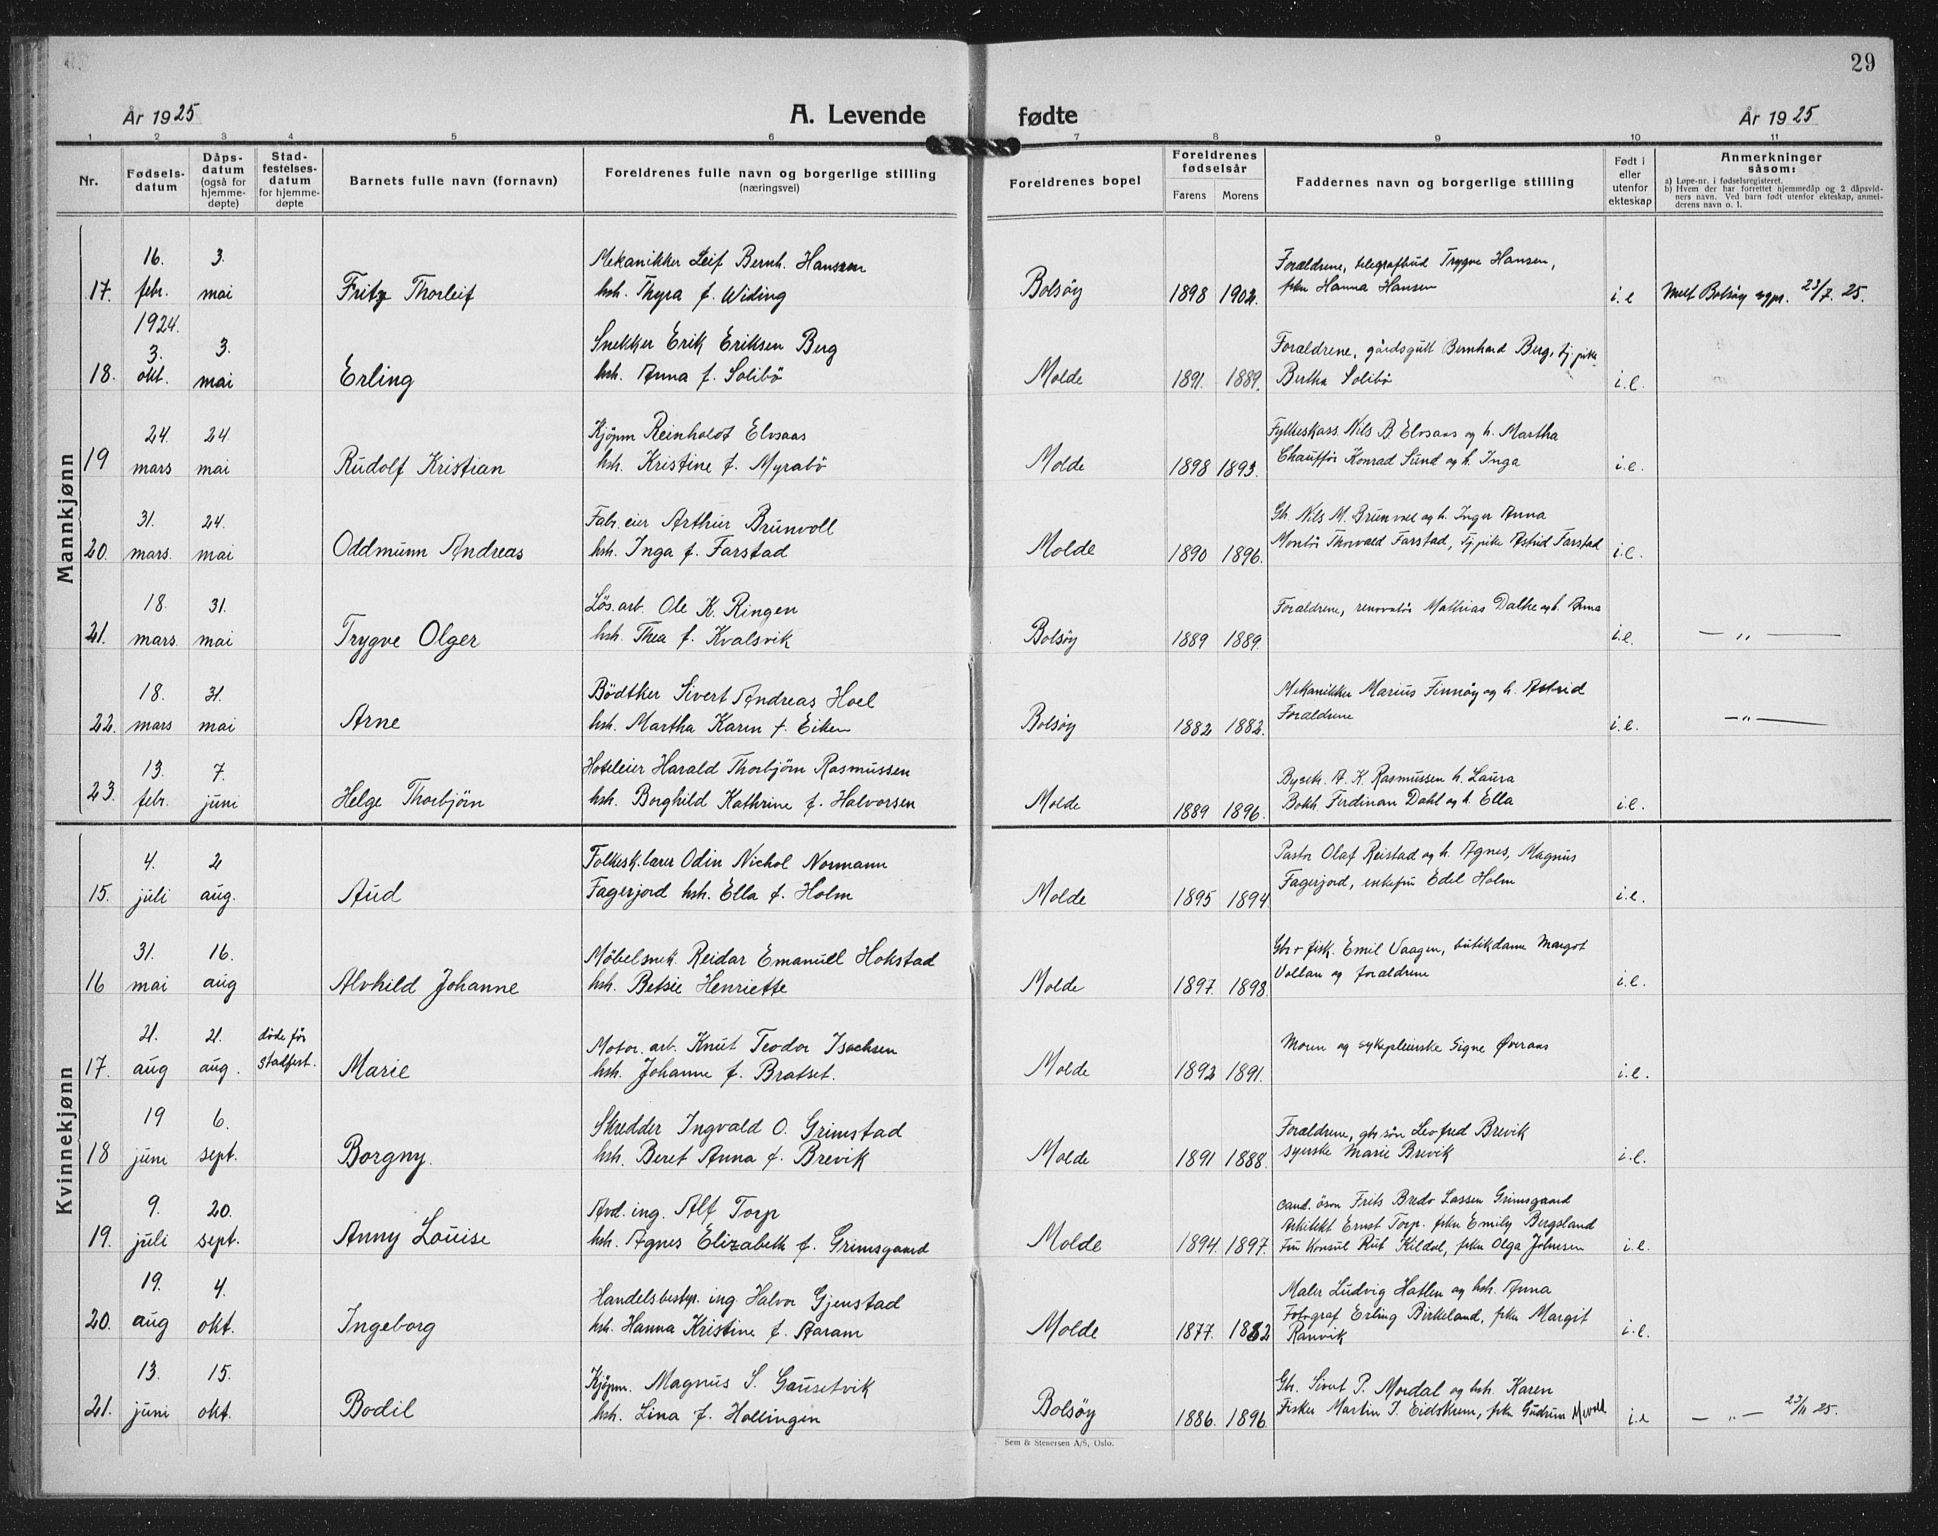 29
År 1925
A. Levende
fødte
År 1925
1 2 3 4 5 6 7 8 9 10 11
Nr.
Fødsels-
datum
Dåps-
datum
(også for
hjemme-
døpte)
Stad-
festelses-
datum
for hjemme-
døpte
Barnets fulle navn (fornavn)
Foreldrenes fulle navn og borgerlige stilling
(næringsvei)
Foreldrenes bopel
Foreldrenes
fødselsår
Farens Morens
Faddernes navn og borgerlige stilling
Født i
eller
utenfor
ekteskap
Anmerkninger
såsom:
a) Løpe-nr. i fødselsregisteret.
b) Hvem der har forrettet hjemmedåp og 2 dåpsvid-
ners navn. Ved barn født utenfor ekteskap, anmel-
derens navn o. l.
Mannkjønn
16. 3. Mekanikker Leif Bernh. Hansen Forældrene, telegrafbud Trygve Hansen,
17. febr. mai Fritz Thorleif hsh. Thyra f. Widing Bolsøy 1898 1902. frkn Hanna Hansen i.e Melt Bolsøy sgpr. 23/7. 25.
1924.
3. 3. Snekker Erik Eriksen Berg Forældrene, gårdsgutt Bernhard Berg, tj.pike
18. okt. mai Erling hsh. Anna f. Solibø Molde 1891. 1889. Bertha Solibø i.e.
24. 24. Kjøpm Reinholdt Elvsaas Fylkeskass. Nils B Elvsaas og h. Martha
19 mars mai Rudolf Kristian hsh. Kristine f. Myrabø Molde 1898 1893. Chauffør Konrad Sund og h. Inga i.e.
31. 24. Fabr.eier Arthur Brunvoll Gb. Nils M. Brunvoll og h. Inger Anna
20. mars. mai Oddmunn Andreas hsh. Inga f. Farstad Molde 1890 1896. Montør Thorvald Farstad, tj.pike Astrid Farstad i.e.
18. 31. Løs.arb. Ole K. Ringen Forældrene, renovatør Mathias Dalhe og h. Anna
21. mars. mai Trygve Olger hsh. Thea f. Kvalsvik Bolsøy 1889 1889. i.e. — „ —
18. 31. Bødtker Sivert Andreas Hoel Mekanikker Marius Finnøy og h. Astrid
22. mars mai Arne hsh. Martha Karen f. Eiken Bolsøy 1882 1882. Forældrene i.e. — „ —
13. 7. Hoteleier Harald Thorbjørn Rasmussen A. K. Rasmussen h. Laura
23. febr. juni Helge Thorbjørn hsh. Borghild Kathrine f. Halvorsen Molde 1889 1896. Bokh. Ferdinan Dahl og h. Ella i.e.
Kvinnekjønn
4. 2 Folkesk.lærer Odin Nichol Normann Pastor Olaf Reistad og h. Agnes, Magnus
15. juli aug. Aud Fagerjord hsh. Ella f. Holm Molde 1895 1894 Fagerjord, enkefru Edel Holm i.e.
31. 16. Møbelsnek. Reidar Emanuell Hokstad Gbr fisk. Emil Vaagen, butikdame Margot
16 mai aug Alvhild Johanne hsh. Betsie Henriette Molde 1897. 1898. Vollan og forældrene i.e.
21. 21. døde før Motor. arb. Knut Teodor Isachsen Moren og sykepleierske Signe Øveraas
17. aug aug. stadfest. Marie hsh. Johanne f. Bratset. Molde 1892 1891. i.e.
19 6. Skredder Ingvald O. Grimstad Forældrene, gbr søn Leofred Brevik
18 juni sept. Borgny. hsh. Beret Anna f. Brevik Molde 1891 1888. syerske Marie Brevik i.e.
9. 20. Avd. ing. Alf Torp cand. øcon Frits Bredo Lassen Grimsgaard
Arkitekt Ernst Torp. frkn Emily Bergsland
19. juli sept. Anny Louise hsh. Agnes Elizabeth f. Grimsgaard Molde 1894. 1897. Fru Konsul Rut Kildal, frkn Olga Johnsen i.e.
19. 4. Handelsbestyr. ing. Halvor Gjenstad Maler Ludvig Hatlen og hsh. Anna
Fotograf Erling Birkeland, frkn Margit
20. aug okt. Ingeborg hsh. Hanna Kristine f. Aaram Molde 1877. 1882 Ranvik i.e.
13. 15. Kjøpm. Magnus S. Gausetvik Gb. Sivert P. Mordal og hsh. Karen
21. juni okt. Bodil hsh. Lina f. Hollingen Bolsøy 1886. 1896 Fisker Martin J. Eidskrem, frkn Gudrun i.e — „ — 23/11 25.
Sem & Stenersen A/S, Oslo.